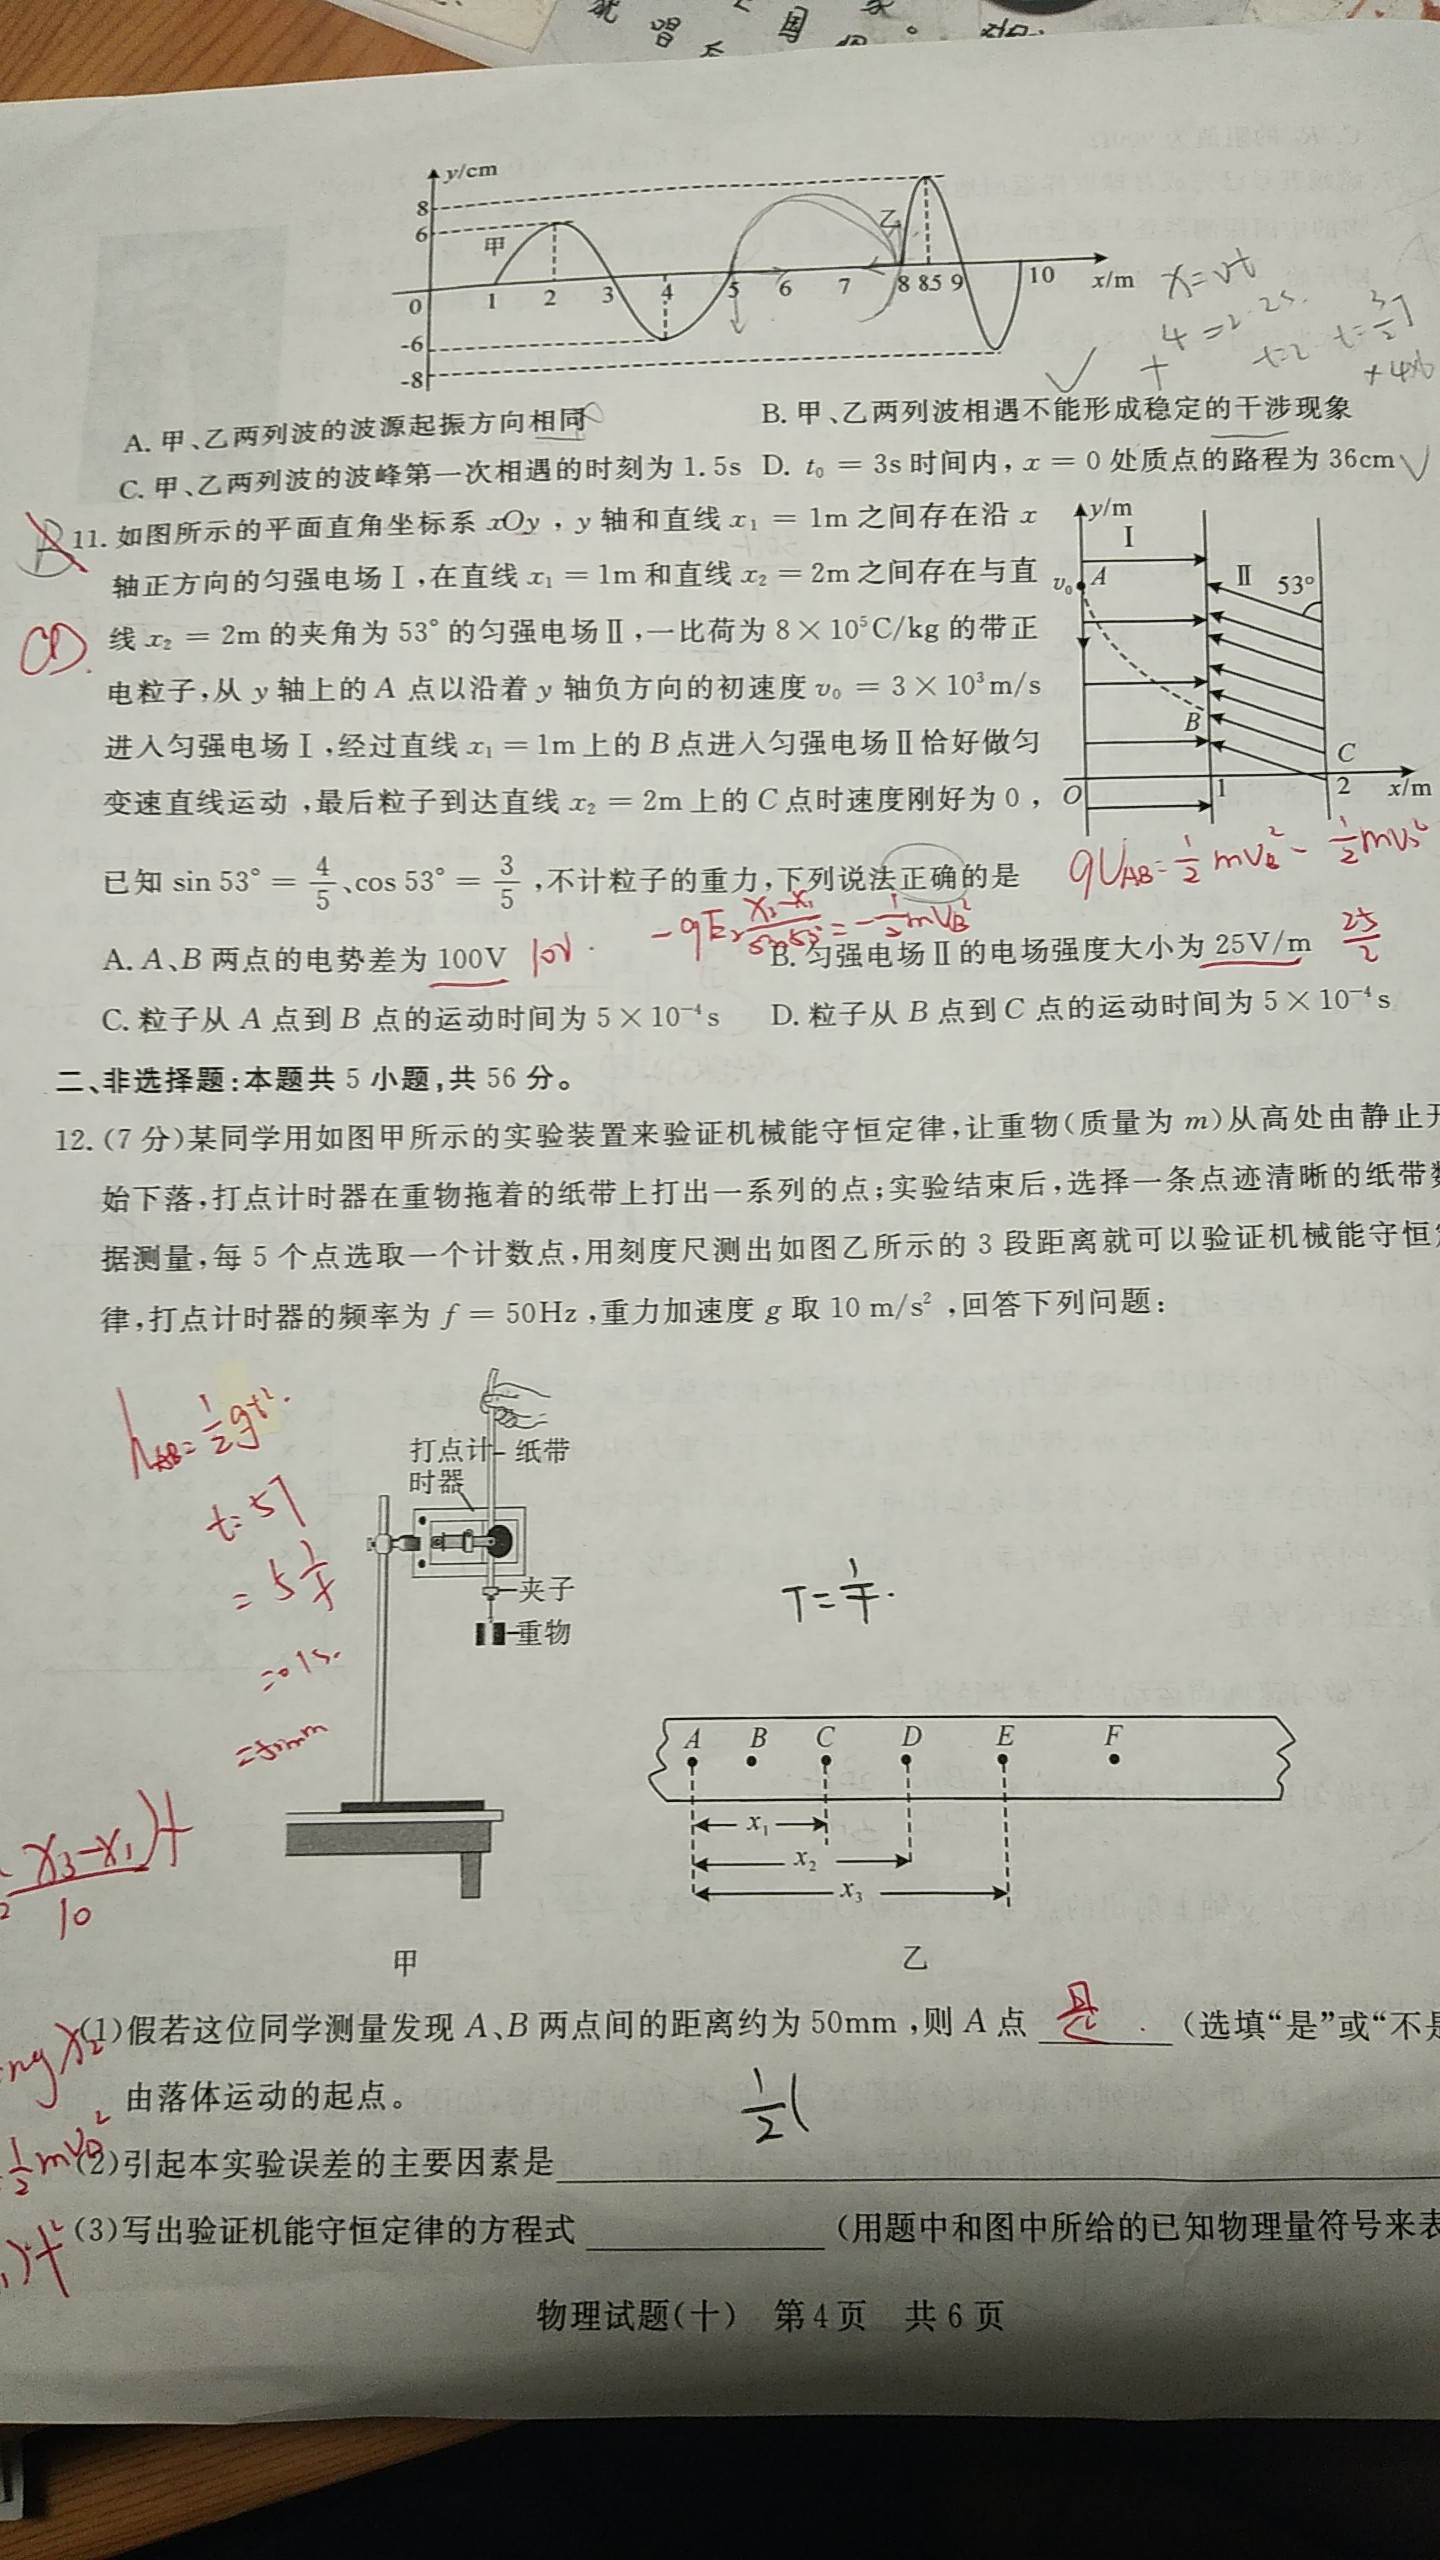 y/cm
8
6
甲
乙
0
1
2
3
4
5
6
7
8
8.5
9
10
x/m
-6
-8
x=vt
A. 甲、乙两列波的波源起振方向相同
B. 甲、乙两列波相遇不能形成稳定的干涉现象
C. 甲、乙两列波的波峰第一次相遇的时刻为 1.5s D. t₀ = 3s 时间内，x = 0 处质点的路程为 36cm
CD.
11. 如图所示的平面直角坐标系 xOy，y 轴和直线 x₁ = 1m 之间存在沿 x
轴正方向的匀强电场Ⅰ，在直线 x₁ = 1m 和直线 x₂ = 2m 之间存在与直
线 x₂ = 2m 的夹角为 53° 的匀强电场Ⅱ，一比荷为 8×10⁵C/kg 的带正
电粒子，从 y 轴上的 A 点以沿着 y 轴负方向的初速度 v₀ = 3×10³m/s
进入匀强电场Ⅰ，经过直线 x₁ = 1m 上的 B 点进入匀强电场Ⅱ恰好做匀
变速直线运动，最后粒子到达直线 x₂ = 2m 上的 C 点时速度刚好为 0，
已知 sin 53° = 4/5、cos 53° = 3/5，不计粒子的重力，下列说法正确的是
y/m
Ⅰ
v₀
A
Ⅱ
53°
B
C
O
1
2
x/m
qU_AB = 1/2 mv_B² - 1/2 mv₀²
A. A、B 两点的电势差为 100V
10V.
B. 匀强电场Ⅱ的电场强度大小为 25V/m
25/2
C. 粒子从 A 点到 B 点的运动时间为 5×10⁻⁴s
D. 粒子从 B 点到 C 点的运动时间为 5×10⁻⁴s
二、非选择题：本题共 5 小题，共 56 分。
12. (7 分)某同学用如图甲所示的实验装置来验证机械能守恒定律，让重物(质量为 m)从高处由静止开
始下落，打点计时器在重物拖着的纸带上打出一系列的点；实验结束后，选择一条点迹清晰的纸带数
据测量，每 5 个点选取一个计数点，用刻度尺测出如图乙所示的 3 段距离就可以验证机械能守恒定
律，打点计时器的频率为 f = 50Hz，重力加速度 g 取 10 m/s²，回答下列问题：
h_AB = 1/2 gt².
t=5T
= 5 1/f
=0.1s.
=50mm
打点计
时器
纸带
夹子
重物
T=1/f.
A B C D E F
x₁
x₂
x₃
甲
乙
(x₃-x₁)f
10
(1)假若这位同学测量发现 A、B 两点间的距离约为 50mm，则 A 点 是 (选填“是”或“不是
由落体运动的起点。
1/2(
mgx₂
1/2 mv_B²
(2)引起本实验误差的主要因素是
(3)写出验证机能守恒定律的方程式 (用题中和图中所给的已知物理量符号来表
物理试题(十) 第 4 页 共 6 页